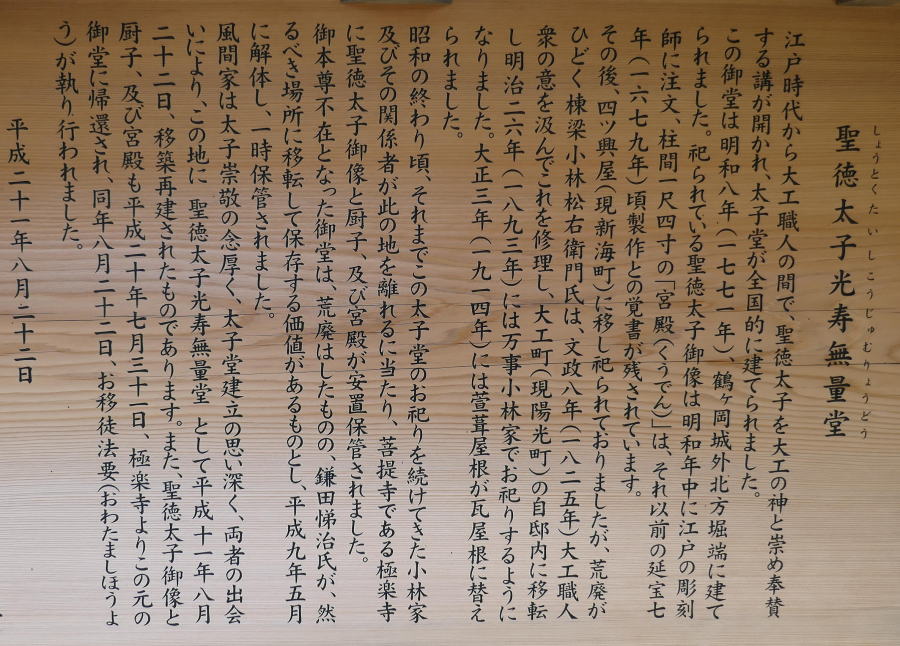 聖徳太子光寿無量堂
しょうとくたいしこうじゅむりょうどう
江戸時代から大工職人の間で、聖徳太子を大工の神と崇め奉賛
する講が開かれ、太子堂が全国的に建てられました。
この御堂は明和八年（一七七一年）、鶴ヶ岡城外北方堀端に建て
られました。祀られている聖徳太子御像は明和年中に江戸の彫刻
師に注文、柱間一尺四寸の「宮殿（くうでん）」は、それ以前の延宝七
年（一六七九年）頃製作との覚書が残されています。
その後、四ツ興屋（現新海町）に移し祀られておりましたが、荒廃が
ひどく棟梁小林松右衛門氏は、文政八年（一八二五年）大工職人
衆の意を汲んでこれを修理し、大工町（現陽光町）の自邸内に移転
し明治二六年（一八九三年）には万事小林家でお祀りするように
なりました。大正三年（一九一四年）には萱葺屋根が瓦屋根に替え
られました。
昭和の終わり頃、それまでこの太子堂のお祀りを続けてきた小林家
及びその関係者が此の地を離れるに当たり、菩提寺である極楽寺
に聖徳太子御像と厨子、及び宮殿が安置保管されました。
御本尊不在となった御堂は、荒廃はしたものの、鎌田悌治氏が、然
るべき場所に移転して保存する価値があるものとし、平成九年五月
に解体し、一時保管されました。
風間家は太子崇敬の念厚く、太子堂建立の思い深く、両者の出会
いにより、この地に 聖徳太子光寿無量堂 として平成十一年八月
二十二日、移築再建されたものであります。また、聖徳太子御像と
厨子、及び宮殿も平成二十年七月三十一日、極楽寺よりこの元の
御堂に帰還され、同年八月二十二日、お移徒法要（おわたましほうよ
う）が執り行われました。
平成二十一年八月二十二日